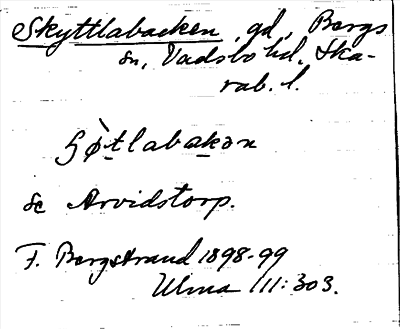 Skyttlabacken, gd, Bergs
sn, Vadsbo hd. Ska-
rab. l.
se Arvidstorp.
F. Bergstrand 1898-99
Ulma 111:303.